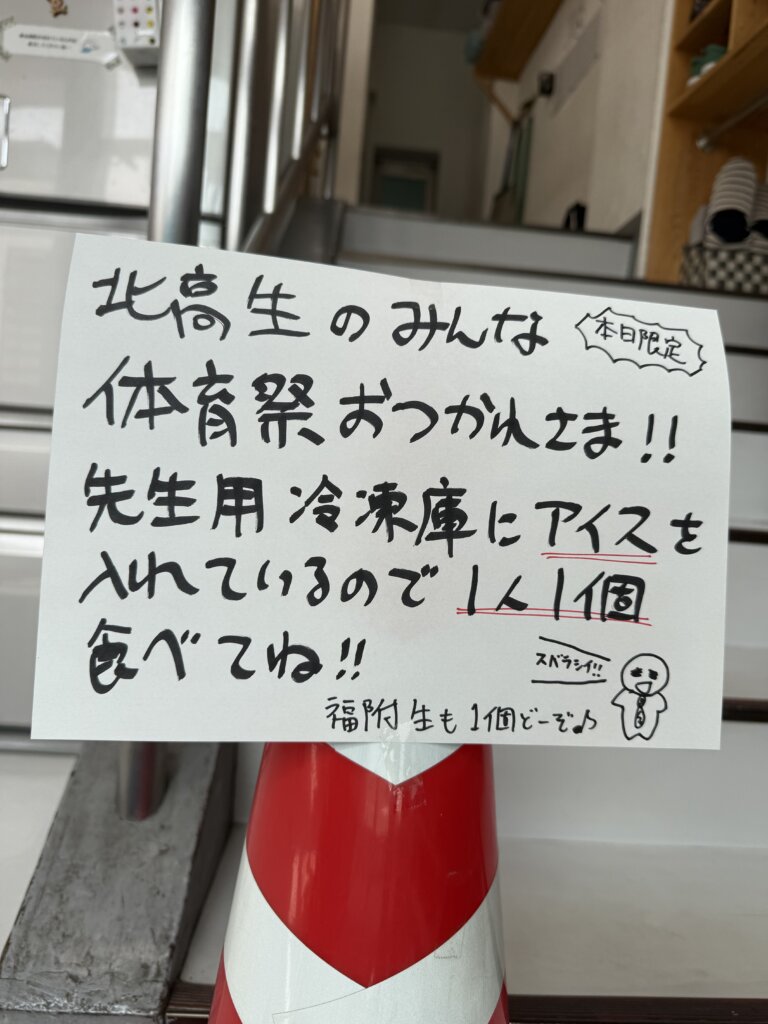 北高生のみんな
本日限定
体育祭おつかれさま!!
先生用冷凍庫にアイスを
入れているので1人1個
食べてね!!
スバラシイ!!
福附生も1個どーぞ♪